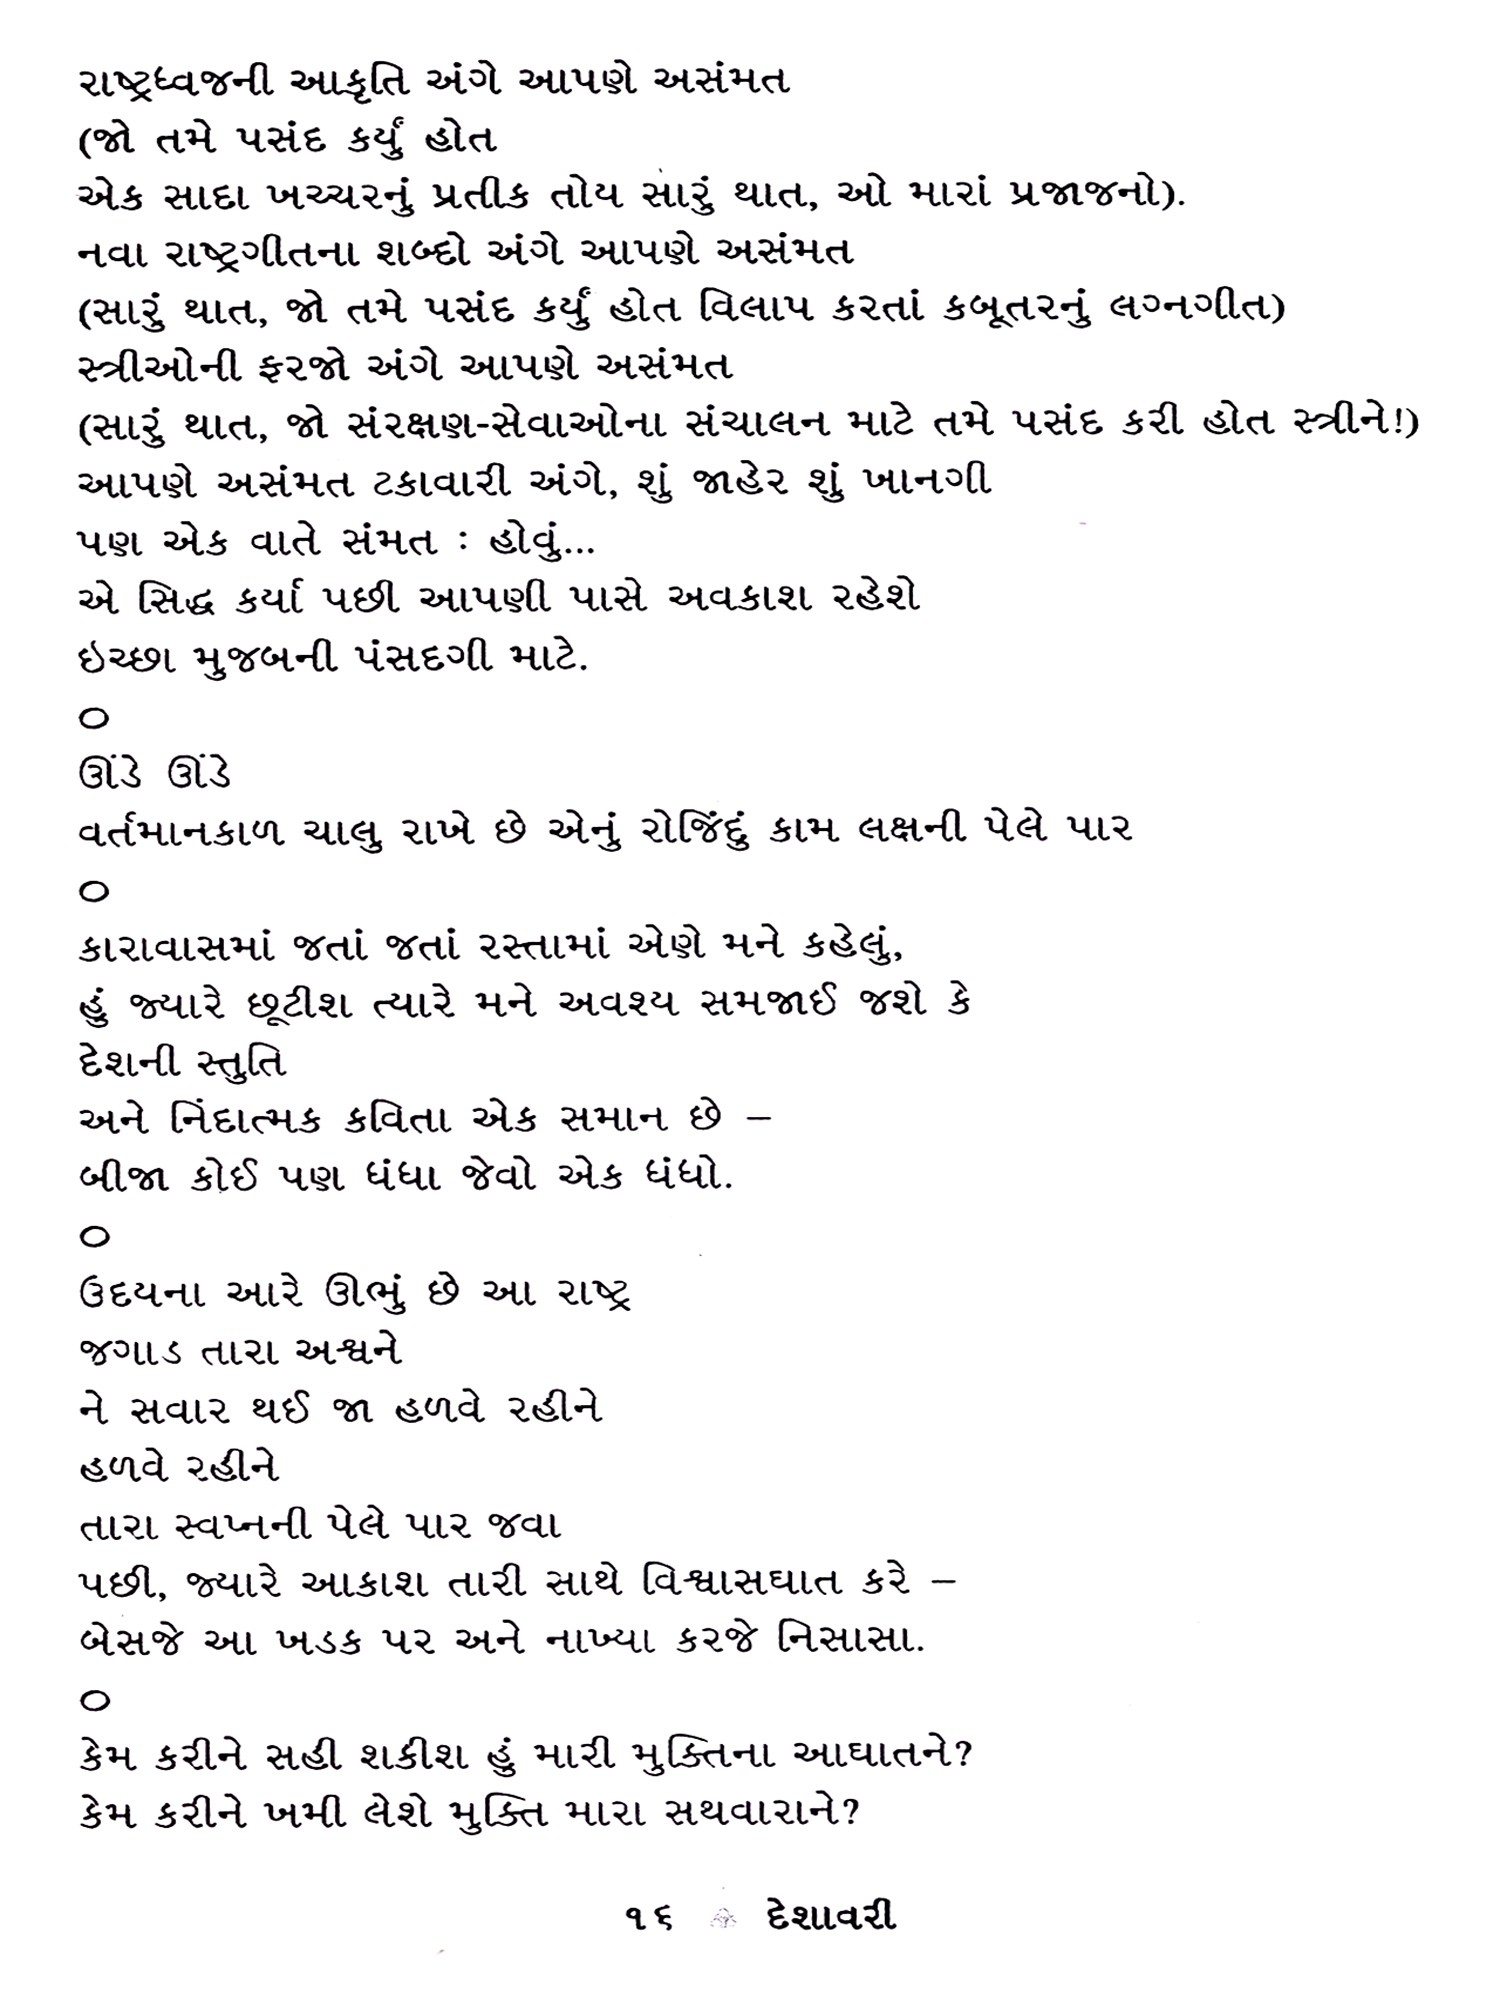 રાષ્ટ્રધ્વજની આકૃતિ અંગે આપણે અસંમત
(જો તમે પસંદ કર્યું હોત
એક સાદા ખચ્ચરનું પ્રતીક તોય સારું થાત, ઓ મારાં પ્રજાજનો).
નવા રાષ્ટ્રગીતના શબ્દો અંગે આપણે અસંમત
(સારું થાત, જો તમે પસંદ કર્યું હોત વિલાપ કરતાં કબૂતરનું લગ્નગીત)
સ્ત્રીઓની ફરજો અંગે આપણે અસંમત
(સારું થાત, જો સંરક્ષણ-સેવાઓના સંચાલન માટે તમે પસંદ કરી હોત સ્ત્રીને!)
આપણે અસંમત ટકાવારી અંગે, શું જાહેર શું ખાનગી
પણ એક વાતે સંમત : હોવું...
એ સિદ્ધ કર્યા પછી આપણી પાસે અવકાશ રહેશે
ઇચ્છા મુજબની પંસદગી માટે.
૦
ઊંડે ઊંડે
વર્તમાનકાળ ચાલુ રાખે છે એનું રોજિંદું કામ લક્ષની પેલે પાર
૦
કારાવાસમાં જતાં જતાં રસ્તામાં એણે મને કહેલું,
હું જ્યારે છૂટીશ ત્યારે મને અવશ્ય સમજાઈ જશે કે
દેશની સ્તુતિ
અને નિંદાત્મક કવિતા એક સમાન છે –
બીજા કોઈ પણ ધંધા જેવો એક ધંધો.
૦
ઉદયના આરે ઊભું છે આ રાષ્ટ્ર
જગાડ તારા અશ્વને
ને સવાર થઈ જા હળવે રહીને
હળવે રહીને
તારા સ્વપ્નની પેલે પાર જવા
પછી, જ્યારે આકાશ તારી સાથે વિશ્વાસઘાત કરે –
બેસજે આ ખડક પર અને નાખ્યા કરજે નિસાસા.
૦
કેમ કરીને સહી શકીશ હું મારી મુક્તિના આઘાતને?
કેમ કરીને ખમી લેશે મુક્તિ મારા સથવારાને?
૧૬ દેશાવરી